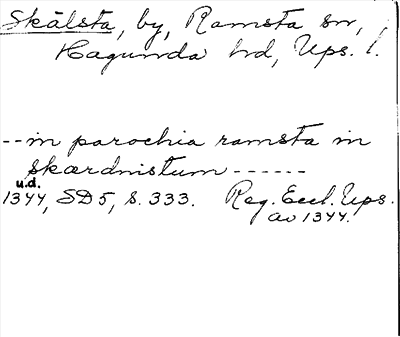 Skålsta, by, Ramsta sn,
Hagunda hd, Ups. l.
--in parochia ramsta in
skærdnistum ------
u.d.
1344, SD5, s. 333. Reg. Eccl. Ups.
av 1344.